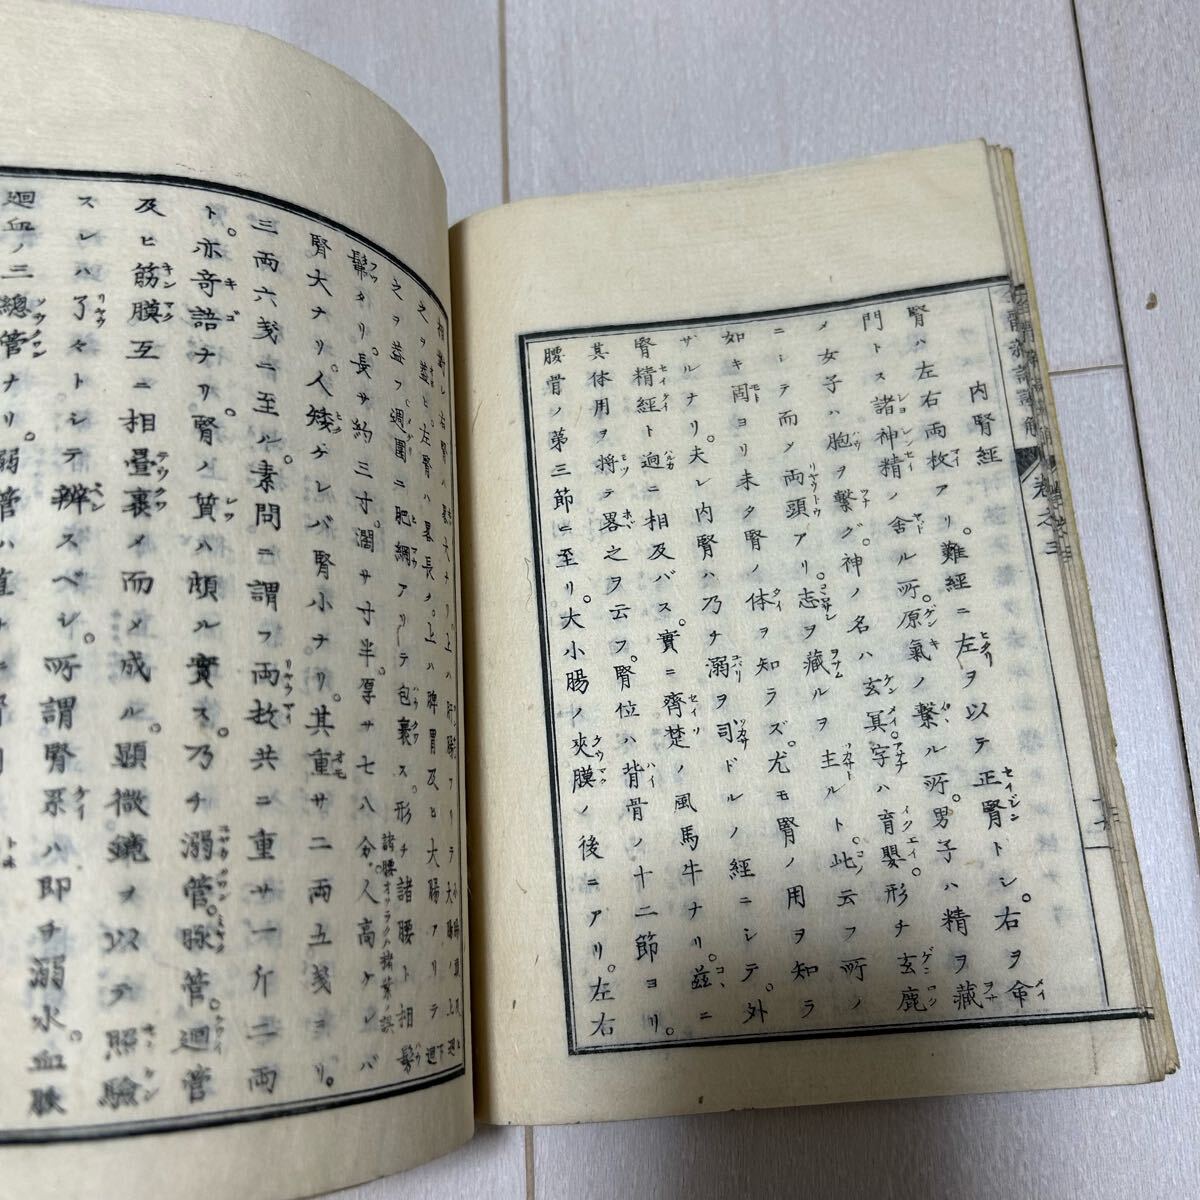 内腎經
腎ハ左右両枚アリ。難經ニ左ヲ以テ正腎トシ。右ヲ命
門トス諸神精ノ舎ル所。原氣ノ繋ル所。男子ハ精ヲ藏
メ女子ハ胞ヲ繋グ。神ノ名ハ玄冥字ハ育嬰。形チ玄鹿
ニシテ而メ両頭アリ志ヲ藏ルヲ主ルト。此云フ所ノ
如キ固ヨリ未タ腎ノ体ヲ知ラズ。尤モ腎ノ用ヲ知ラ
ザルナリ。夫レ内腎ハ乃チ溺ヲ司ドルノ經ニシテ。外
腎精經ト逈ニ相及バス。實ニ齊楚ノ風馬牛ナリ。茲ニ
其体用ヲ将テ畧之ヲ云フ。腎位ハ背骨ノ十二節ヨリ。
腰骨ノ第三節ニ至リ。大小腸ノ夾膜ノ後ニアリ。左右
之ヲ益ヒ左腎ハ畧長ク。上ハ脾胃及ヒ大腸アリテ
之ヲ益フ週圍ニ肥網アリテ包裹ス。形チ諸腰ト相髣
髴タリ。長サ約三寸。濶サ寸半。厚サ七八分。人高ケレバ
腎大ナリ。人矮ケレバ腎小ナリ。其重サ二両五戔ヨリ。
三両六戔ニ至ル。素問ニ謂フ両枚共ニ重サ一斤二両
ト。亦竒語ナリ。腎ノ質ハ頗ル實ス。乃チ溺管。脉管。迴管
及ヒ筋膜互ニ相疊裹メ而メ成ル。顕微鏡ヲ以テ照驗
スレハ了々トシテ辨スベシ。所謂腎系ハ即チ溺水。血脉
迴血ノ三總管ナリ。溺管ハ